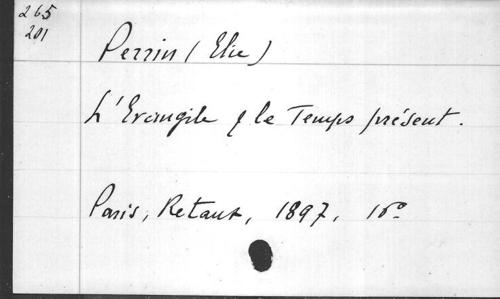 265
201
Perrin (Elie)
L'Evangile & le Temps présent.
Paris, Retaux, 1897, 16°